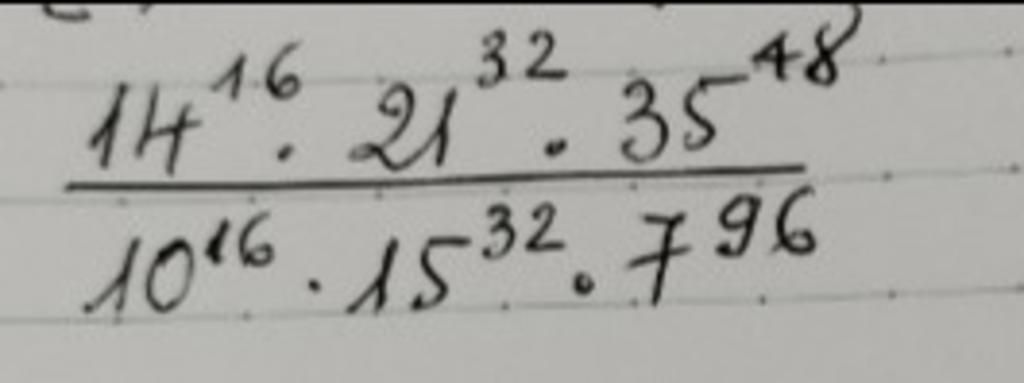 14^16 . 21^32 . 35^48
10^16 . 15^32 . 7^96